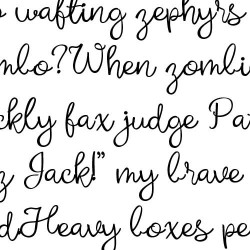 wafting zephyrs
mbo?When zombi
ckly fax judge Pa
z Jack!" my brave
dHeavy boxes pe